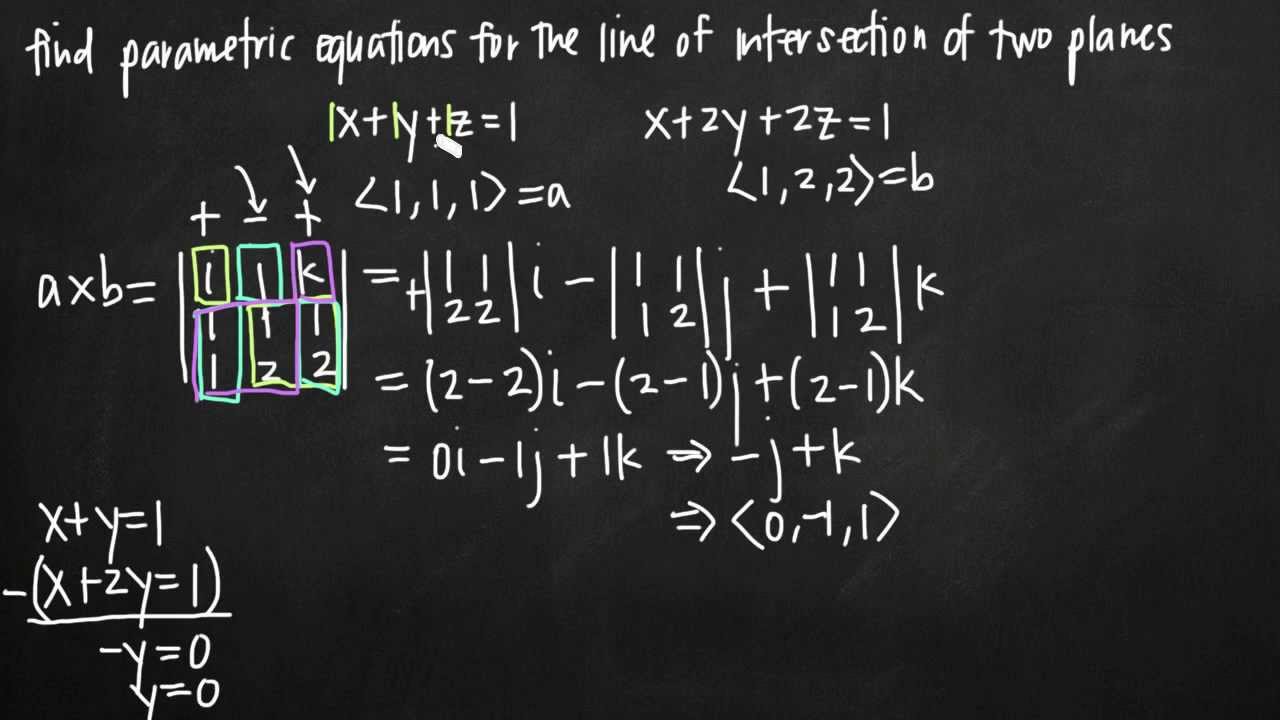 find parametric equations for the line of intersection of two planes
1x+1y+1z=1 x+2y+2z=1
⟨1,1,1⟩=a ⟨1,2,2⟩=b
+ − +
a×b= |i j k| = +|1 1| i − |1 1| j + |1 1| k
|1 1 1| |2 2| |1 2| |1 2|
|1 2 2|
= (2−2)i−(2−1)j+(2−1)k
= 0i−1j+1k ⇒ −j+k
⇒ ⟨0,−1,1⟩
x+y=1
−(x+2y=1)
−y=0
y=0